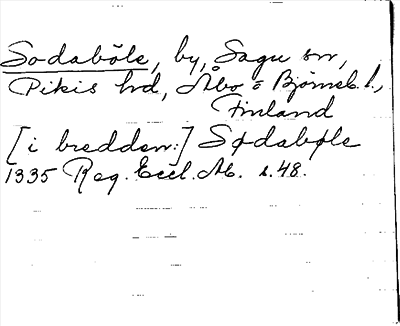 Sodaböle, by, Sagu sn,
Pikis hrd, Åbo o Björneb. l.,
Finland
[i bredden:] Sødabøle
1335 Reg. Eccl. Ab. s. 48.